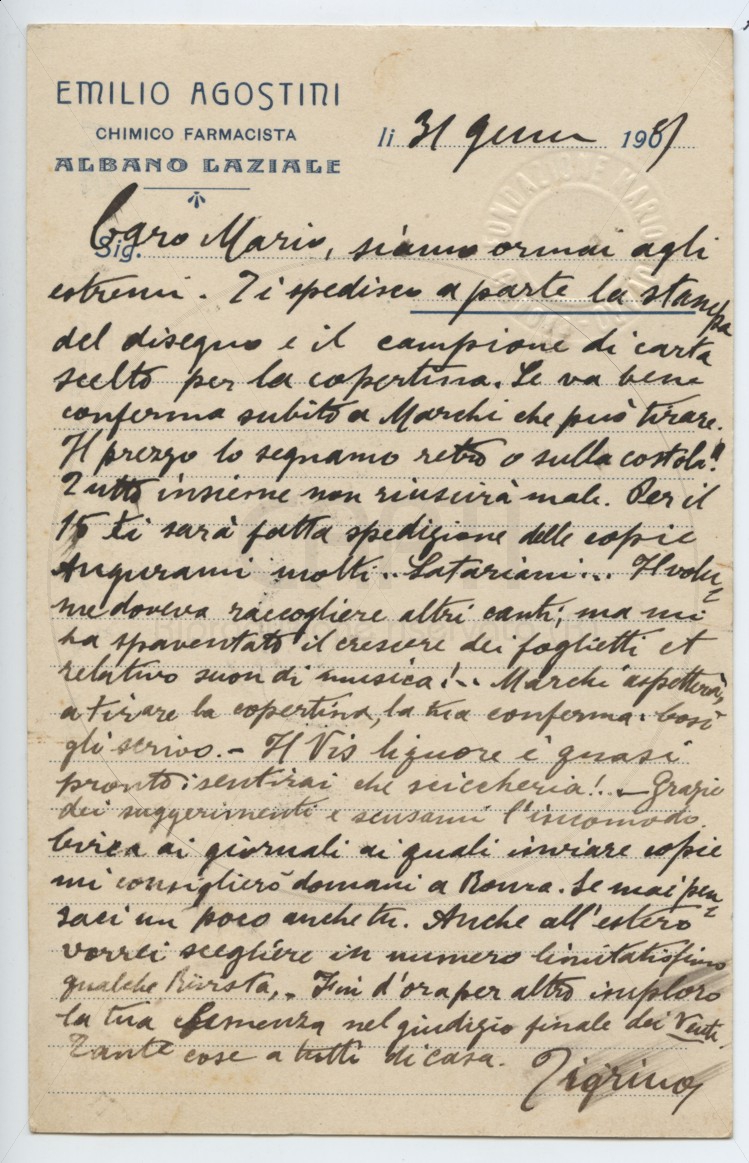 EMILIO AGOSTINI
CHIMICO FARMACISTA
ALBANO LAZIALE
li 31 Genn 190
FONDAZIONE MARIO
Sig.
Caro Mario, siamo ormai agli
estremi. Ti spedisco a parte la stampa
del disegno e il campione di carta
scelto per la copertina. Se va bene
conferma subito a Marchi che può tirare.
Il prezzo lo segnamo retro o sulla costola?
Tutto insieme non riuscirà male. Per il
15 ti sarà fatta spedizione delle copie
Augurami molti.. Satariani... Il volu=
me doveva raccogliere altri canti; ma mi
ha spaventato il crescere dei foglietti et
relativo suon di musica!... Marchi aspetterà,
a tirare la copertina, la tua conferma. Così
gli scrivo. - Il Vis liquore è quasi
pronto: sentirai che sciccheria!.. - Grazie
dei suggerimenti e scusami l'incomodo.
Circa ai giornali ai quali inviare copie
mi consiglierò domani a Roma. Se mai pen=
saci un poco anche tu. Anche all'estero
vorrei scegliere in numero limitatissimo
qualche Rivista,. Fin d'ora per altro imploro
la tua clemenza nel giudizio finale dei Venti.
Tante cose a tutti di casa.
Tigrino